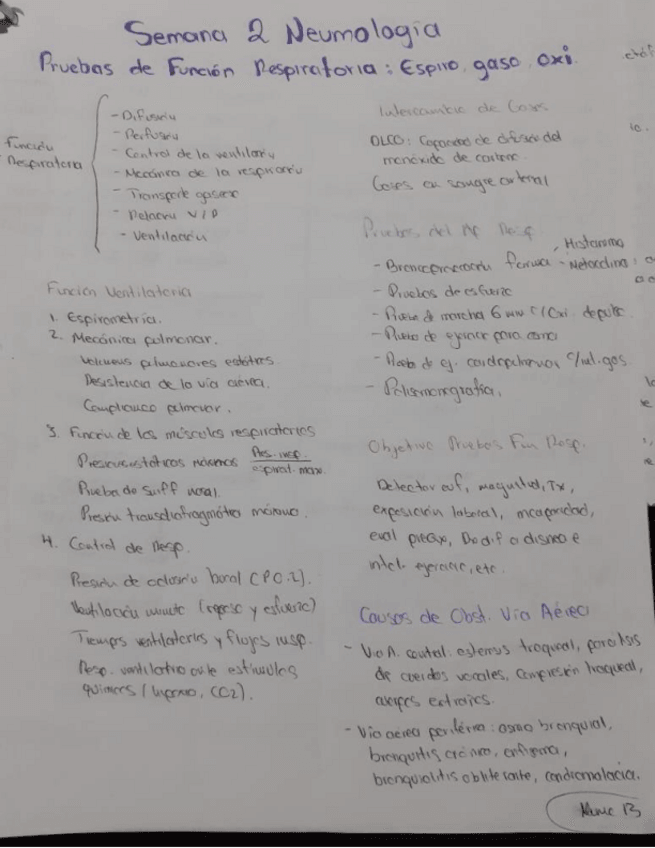 Semana 2 Neumología
Pruebas de Función Respiratoria: Espiro, gaso, oxi.
Función
Respiratoria
- Difusión
- Perfusión
- Control de la ventilación
- Mecánica de la respiración
- Transporte gaseoso
- Relación V/P
- Ventilación
Función Ventilatoria
1. Espirometría.
2. Mecánica pulmonar.
Volúmenes pulmonares estáticos
Resistencia de la vía aérea.
Compliance pulmonar.
3. Función de los músculos respiratorios
Presiones estáticas máximas Pres. insp. espirat. max.
Prueba de Sniff nasal.
Presión transdiafragmática máxima.
4. Control de Resp.
Presión de oclusión bucal (P0.1).
Ventilación minuto (reposo y esfuerzo)
Tiempos ventilatorios y flujos insp.
Resp. ventilatoria ante estímulos
químicos (hiperoxia, CO2).
Intercambio de Gases
DLCO: Capacidad de difusión del
monóxido de carbono.
Gases en sangre arterial
Pruebas del Resp
- Broncoprovocación - Histamina
Metacolina
- Pruebas de esfuerzo
- Prueba de marcha 6 min c/Oxi. de pulso.
- Prueba de ejercicio para asma
- Prueba de ej. cardiopulmonar c/ gas.
- Polisomnografía.
Objetivo Pruebas Fun Resp.
Detectar enf, magnitud, Tx,
exposición laboral, incapacidad,
eval preqx, Dx dif a disnea e
intol. ejercicio, etc.
Causas de Obst. Vía Aérea
- Vía A. central: estenosis traqueal, parálisis
de cuerdas vocales, compresión traqueal,
cuerpos extraños.
- Vía aérea periférica: asma bronquial,
bronquitis crónica, enfisema,
bronquiolitis obliterante, condromalacia.